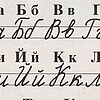 а Бб Вв Г
а Бб Вв Г
Ии Йй Кк Л
Ии Йй Кк Л